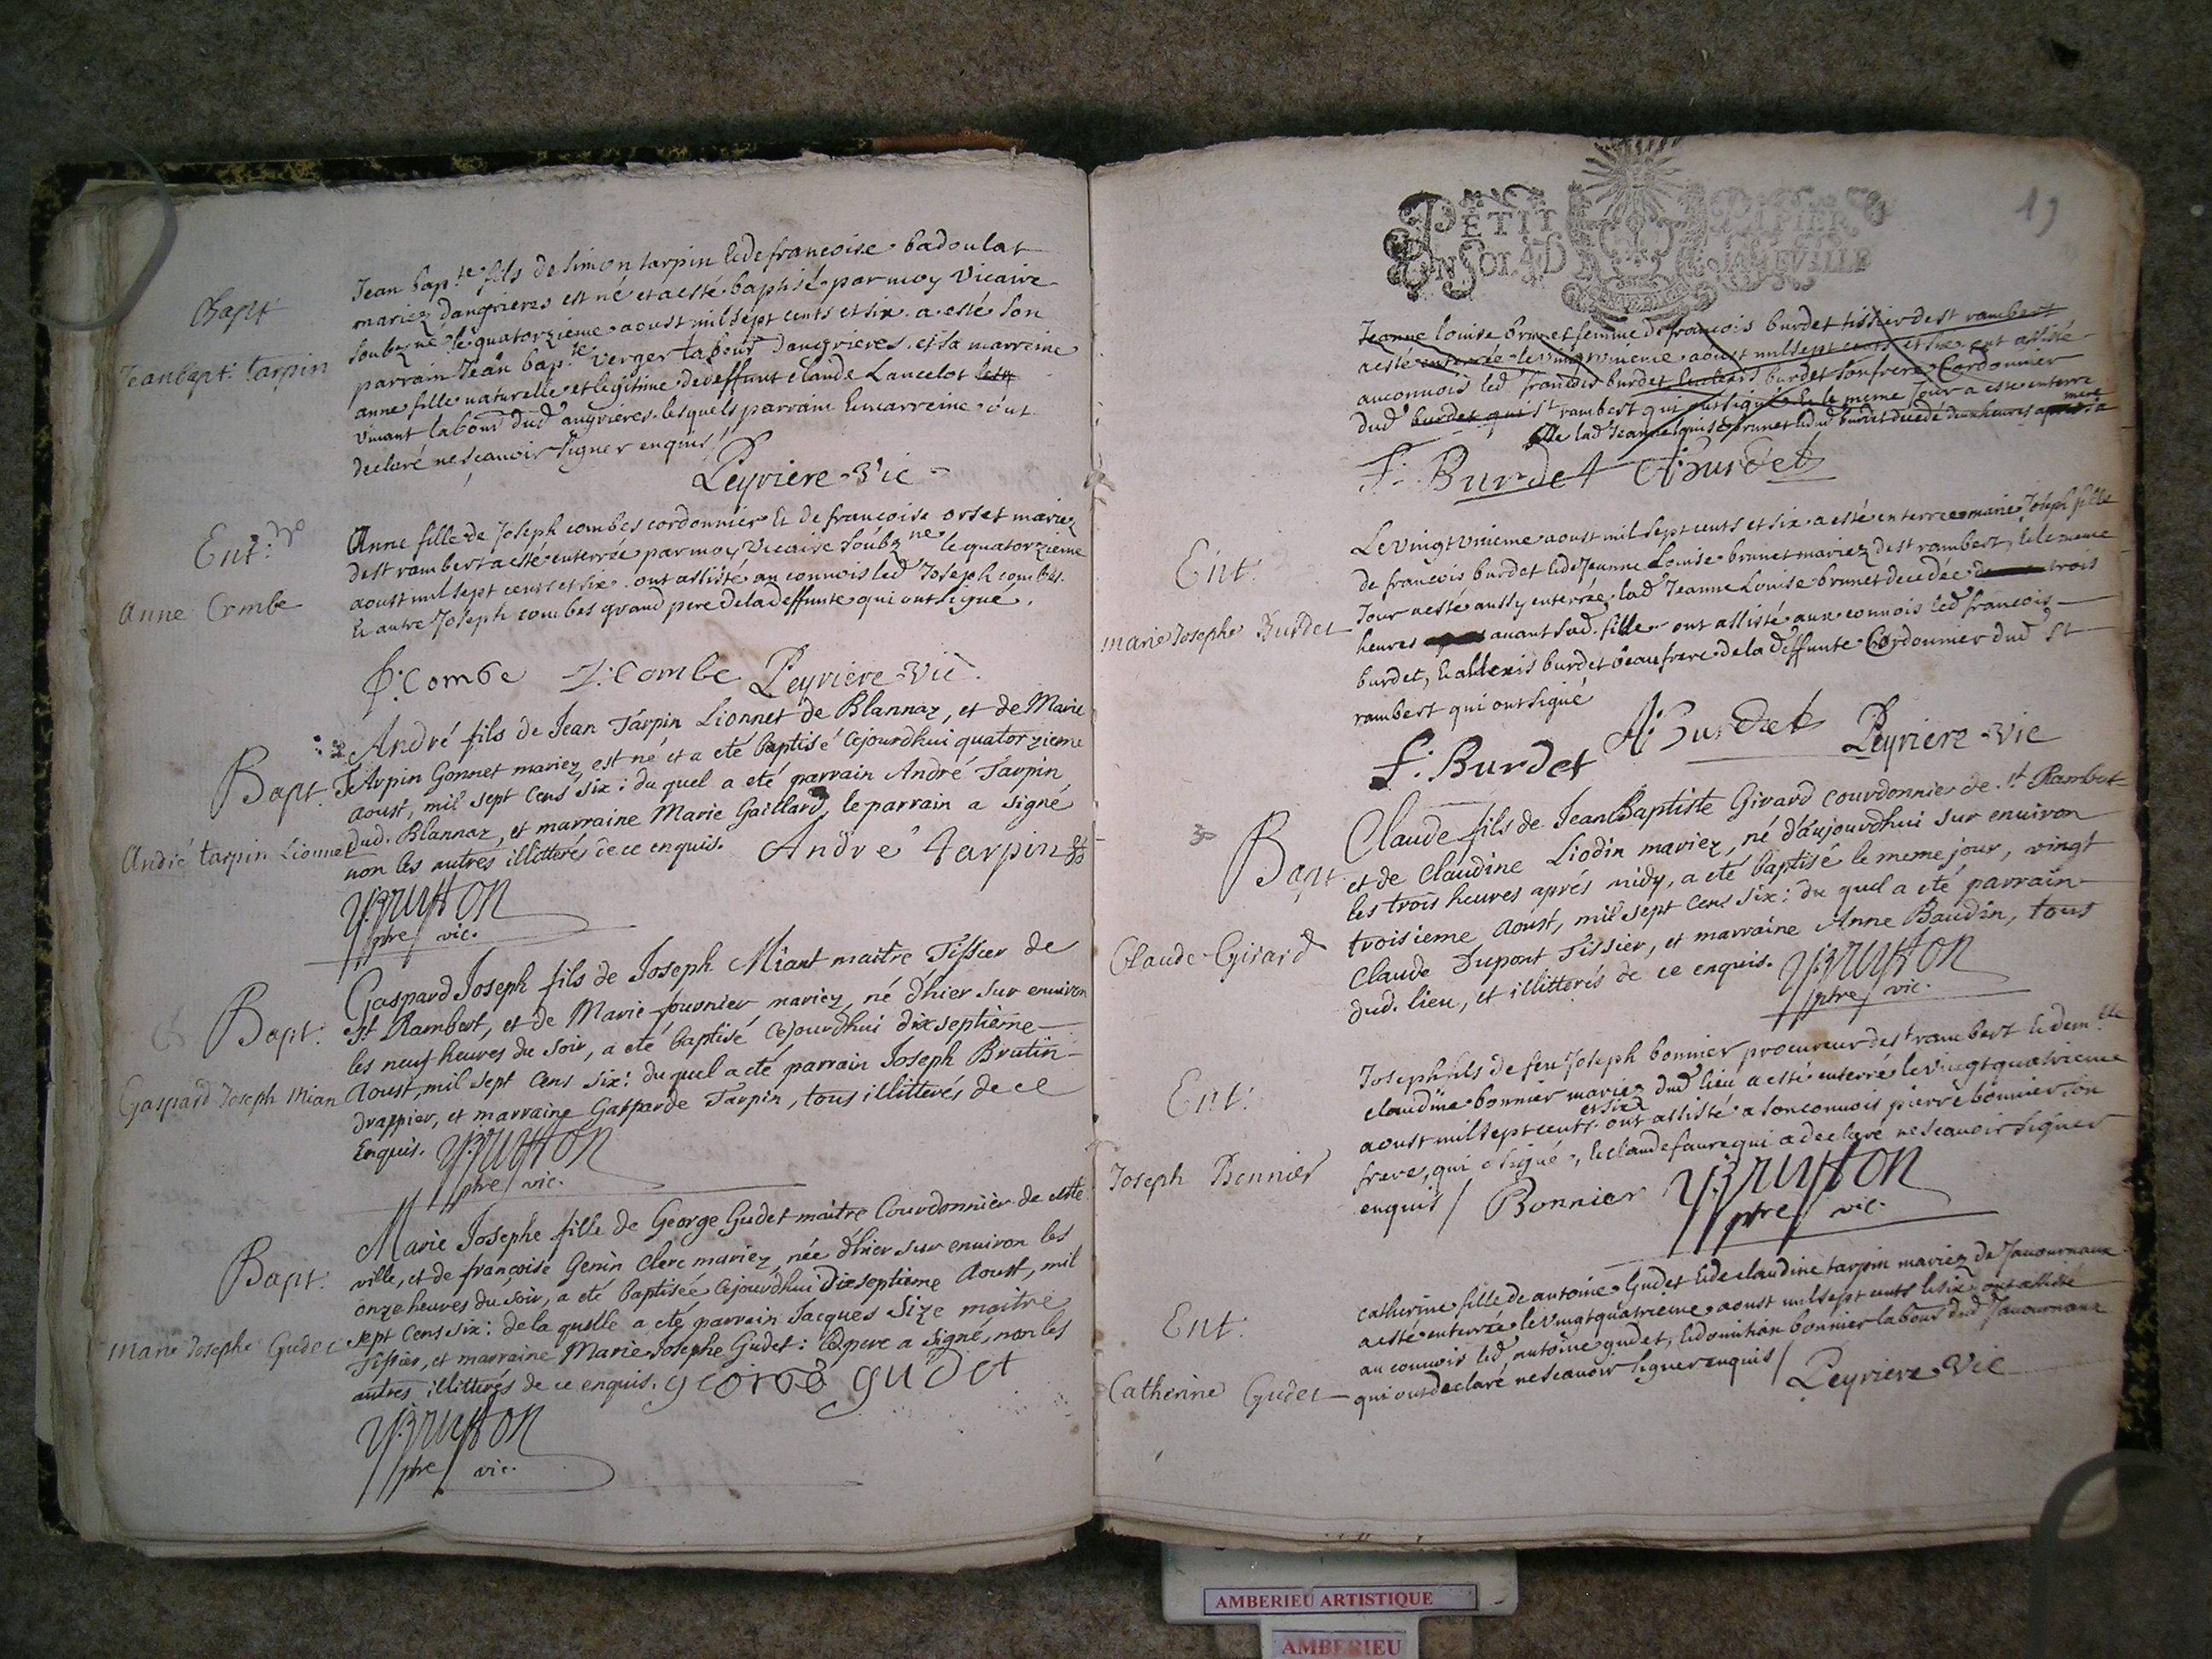 Bapt
Jean bapt: tarpin
Jean bap.te fils de simon tarpin & de francoise badoulat
mariez dangrieres est né et a esté baptisé par moy vicaire
soubzné le quatorzieme aoust mil sept cents et six a esté son
parrain Jean bap.te verger labour dangrieres et sa marreine
anne fille naturelle et legitime de deffunt claude Lancelot
vivant labour dud angrieres lesquels parrain & marreine ont
declaré ne scavoir signer enquis /
Peyriere vic
Ent:
Anne Combe
Anne fille de Joseph combes cordonnier & de francoise orset mariez
de st rambert a esté enterrée par moy vicaire soubzné le quatorzieme
aoust mil sept cents et six ont assisté au convois led Joseph combes
& autre Joseph combes grand pere de la deffunte qui ont signé.
J: Combe J: Combe Peyriere vic
Bapt.
André tarpin Lionnet
André fils de Jean Tarpin Lionnet de Blannaz, et de Marie
Tarpin Gonnet mariez, est né et a eté baptisé cejourdhui quatorzieme
aoust, mil sept cens six: du quel a eté parrain André Tarpin
dud. Blannaz, et marraine Marie Gaillard, le parrain a signé
non les autres illitterés de ce enquis. André tarpin
Bruston
ptre vic.
Bapt.
Gaspard Joseph Mian
Gaspard Joseph fils de Joseph Miant maitre Tissier de
St Rambert, et de Marie fournier mariez, né d'hier sur environ
les neuf heures du soir, a eté baptisé cejourdhui dixseptieme
Aoust, mil sept cens six: du quel a eté parrain Joseph Brutin
drappier, et marraine Gasparde Tarpin, tous illitterés de ce
Enquis. Bruston
ptre vic.
Bapt.
Marie Josephe Gudet
Marie Josephe fille de George Gudet maitre Courdonnier de cette
ville, et de françoise Genin Clerc mariez, née d'hier sur environ les
onze heures du soir, a eté baptisée cejourdhui Dixseptieme Aoust, mil
sept cens six: de la quelle a eté parrain Jacques Size maitre
Tissier, et marraine Marie Josephe Gudet: led pere a signé, non les
autres illitterés de ce enquis. george gudet
Bruston
ptre vic.
19
PETIT PAPIER
UN SOL 4 D LA FEVILLE
Jeanne louise brunet femme de francois burdet tissier de st rambert
a esté enterrée le vingt unieme aoust mil sept cents et six ont assisté
au convois led francois burdet & alexis burdet son frere Cordonnier
dud burdet qui st rambert qui ont signé & le meme jour a esté enterré
F: Burdet A Burdet
Ent:
marie Josephe Burdet
Le vingt unieme aoust mil sept cents et six a esté enterree marie Joseph fille
de francois burdet & de Jeanne Louise brunet mariez de st rambert, & le meme
Jour a esté aussy enterrée lad Jeanne Louise brunet decedée trois
heures avant sad. fille ont assisté aux convois led francois
burdet, & allexis burdet beaufrere de la deffunte Cordonnier dud St
rambert qui ont signé
F: Burdet A: Burdet Peyriere vic
Bapt
Claude Girard
Claude fils de Jean Baptiste Girard courdonnier de st Rambert
et de Claudine Liodin mariez, né d'aujourdhui sur environ
les trois heures aprés midy, a eté baptisé le meme jour, vingt
troisieme Aoust, mil sept cens six: du quel a eté parrain
Claude Dupont Tissier, et marraine Anne Baudin, tous
dud. lieu, et illitterés de ce enquis. Bruston
ptre vic.
Ent:
Joseph Bonnier
Joseph fils de feu Joseph bonnier procureur de st rambert & dem.lle
claudine bonnier mariez dud lieu a esté enterré le vingt quatrieme
aoust mil sept cents et six ont assisté a son convois pierre bonnier son
frere, qui a signé, & claude faure qui a declaré ne scavoir signer
enquis / Bonnier Bruston
ptre vic.
Ent:
Catherine Gudet
catherine fille de antoine Gudet & de claudine tarpin mariez de Javornaux
a esté enterrée le vingt quatrieme aoust mil sept cents & six ont assisté
au convois led antoine gudet, & bonnier labour dud Javornaux
qui ont declaré ne scavoir signer enquis / Peyriere vic
AMBERIEU ARTISTIQUE
AMBERIEU